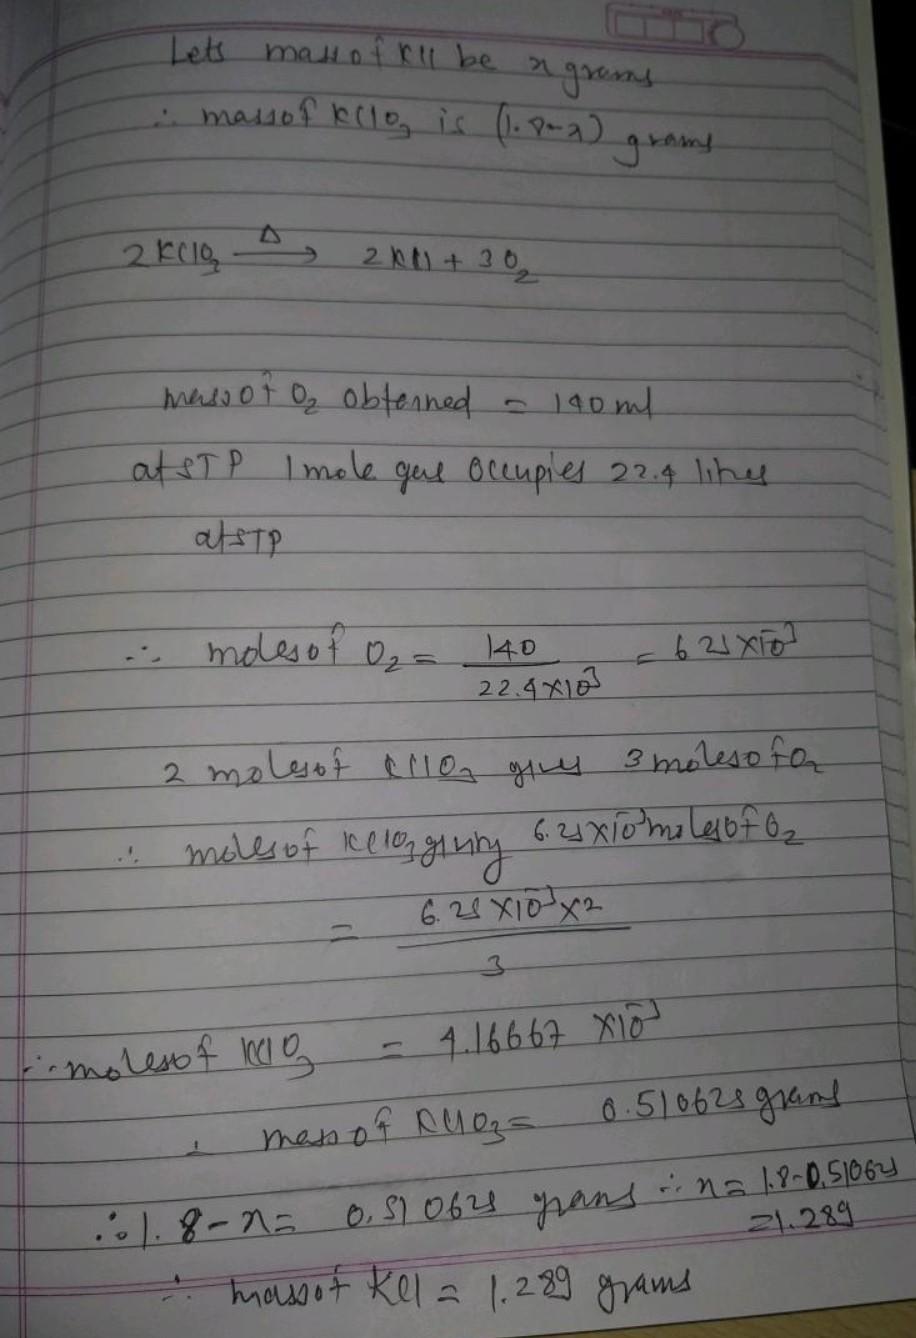 Lets mass of KCl be x grams
∴ mass of KClO₃ is (1.8-x) grams
2KClO₃ —Δ→ 2KCl + 3O₂
mass of O₂ obtained = 140 ml
at STP 1 mole gas occupies 22.4 litres
at STP
∴ moles of O₂ = 140 / 22.4×10³ = 6.25×10⁻³
2 moles of KClO₃ gives 3 moles of O₂
∴ moles of KClO₃ giving 6.25×10⁻³ moles of O₂
= 6.25×10⁻³×2 / 3
∴ moles of KClO₃ = 4.16667 ×10⁻³
∴ mass of KClO₃ = 0.510625 grams
∴ 1.8-x = 0.510625 grams ∴ x = 1.8-0.510625
=1.289
∴ mass of KCl = 1.289 grams